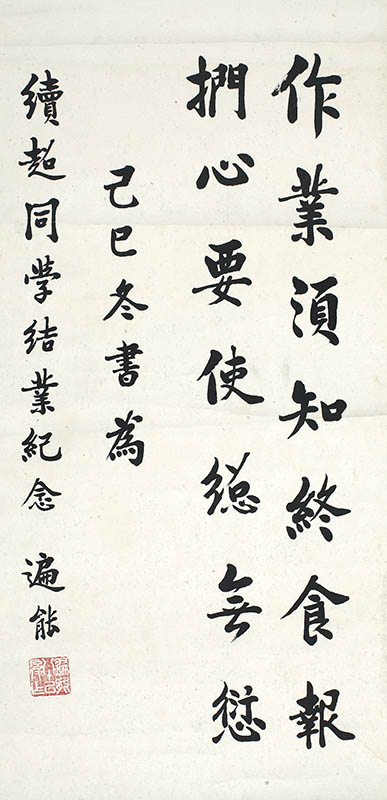 作業須知終食報
捫心要使總無愆
己巳冬書為
續超同學結業紀念 遍能